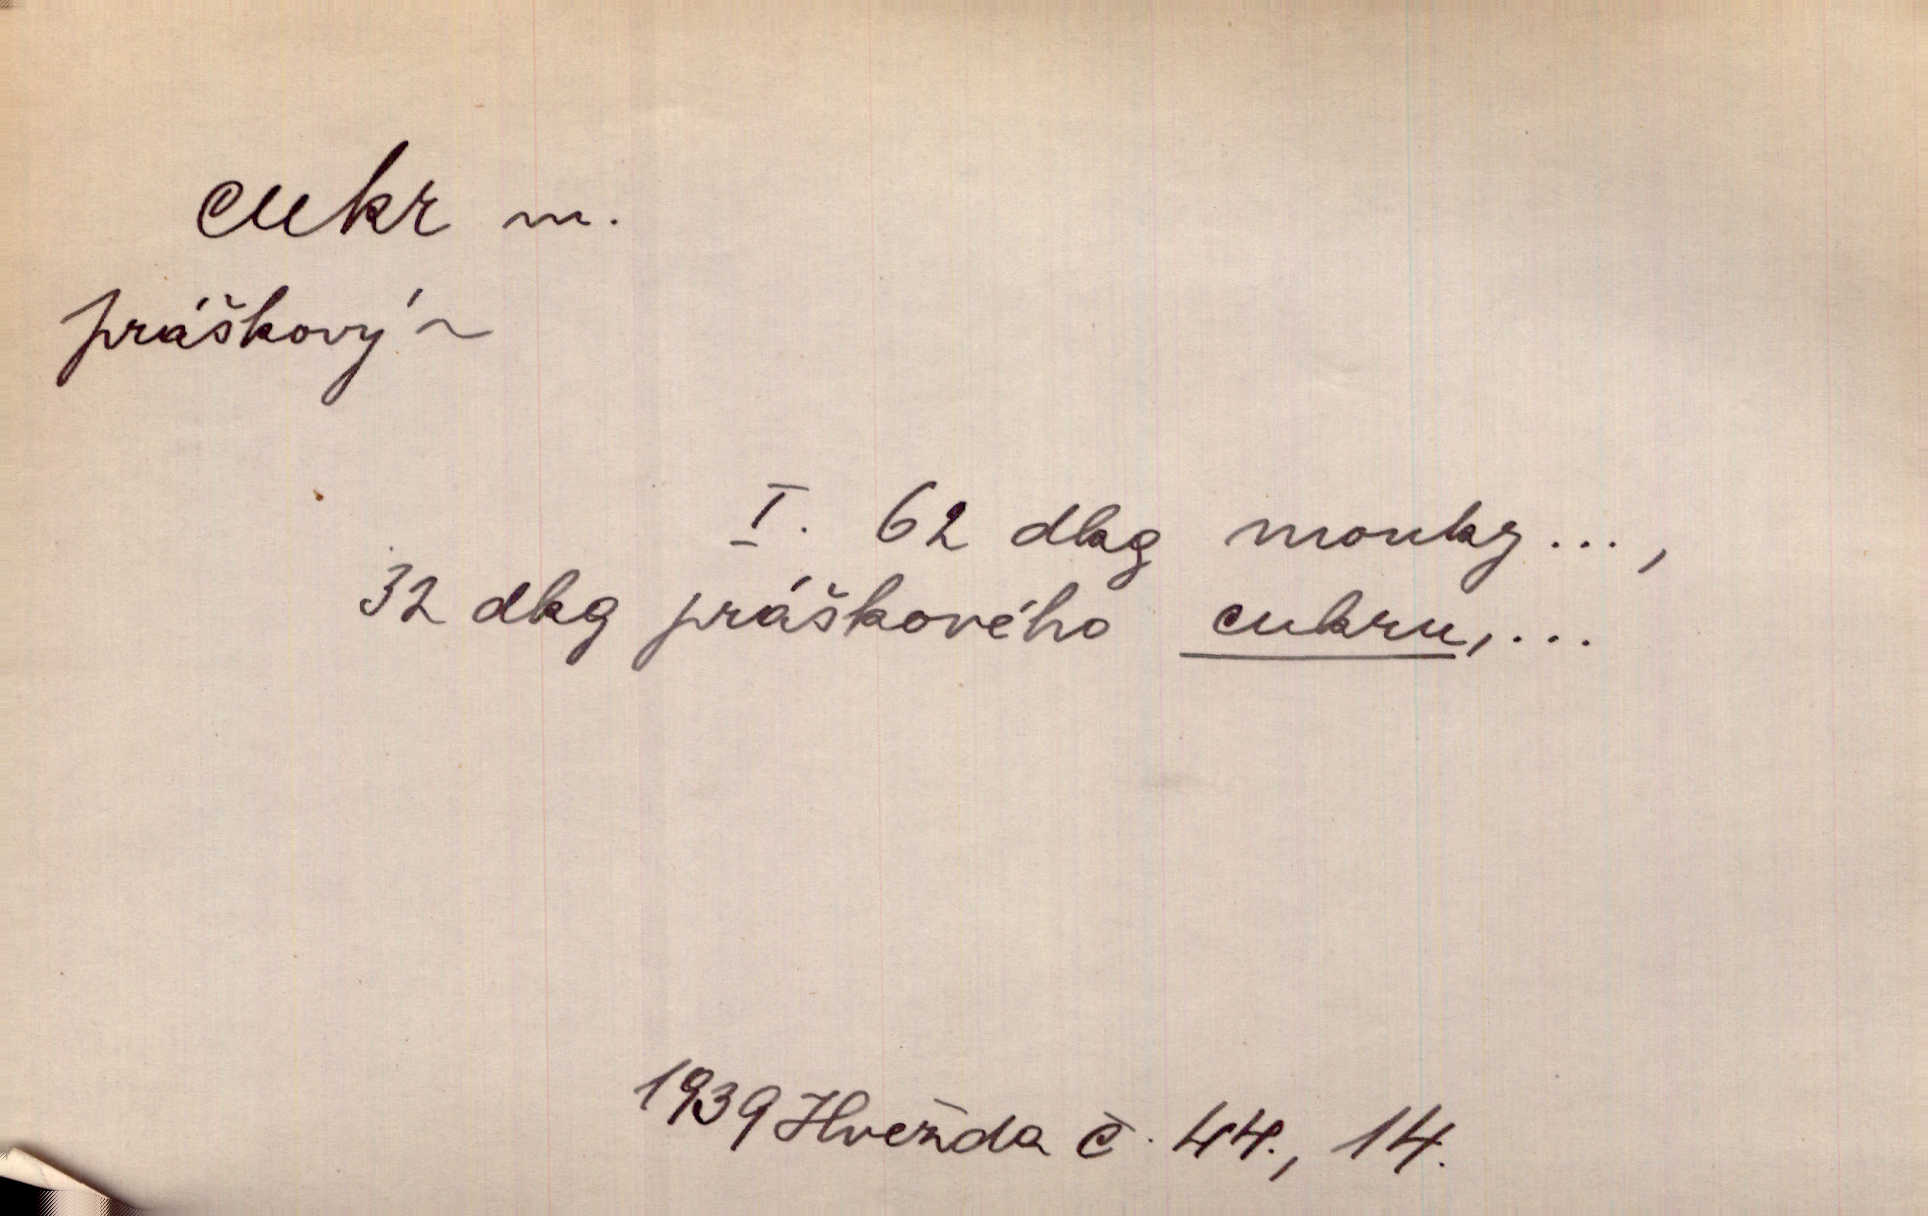 cukr m.
práškový ~
I. 62 dkg mouky...,
32 dkg práškového cukru,...
1939 Hvězda č. 44., 14.